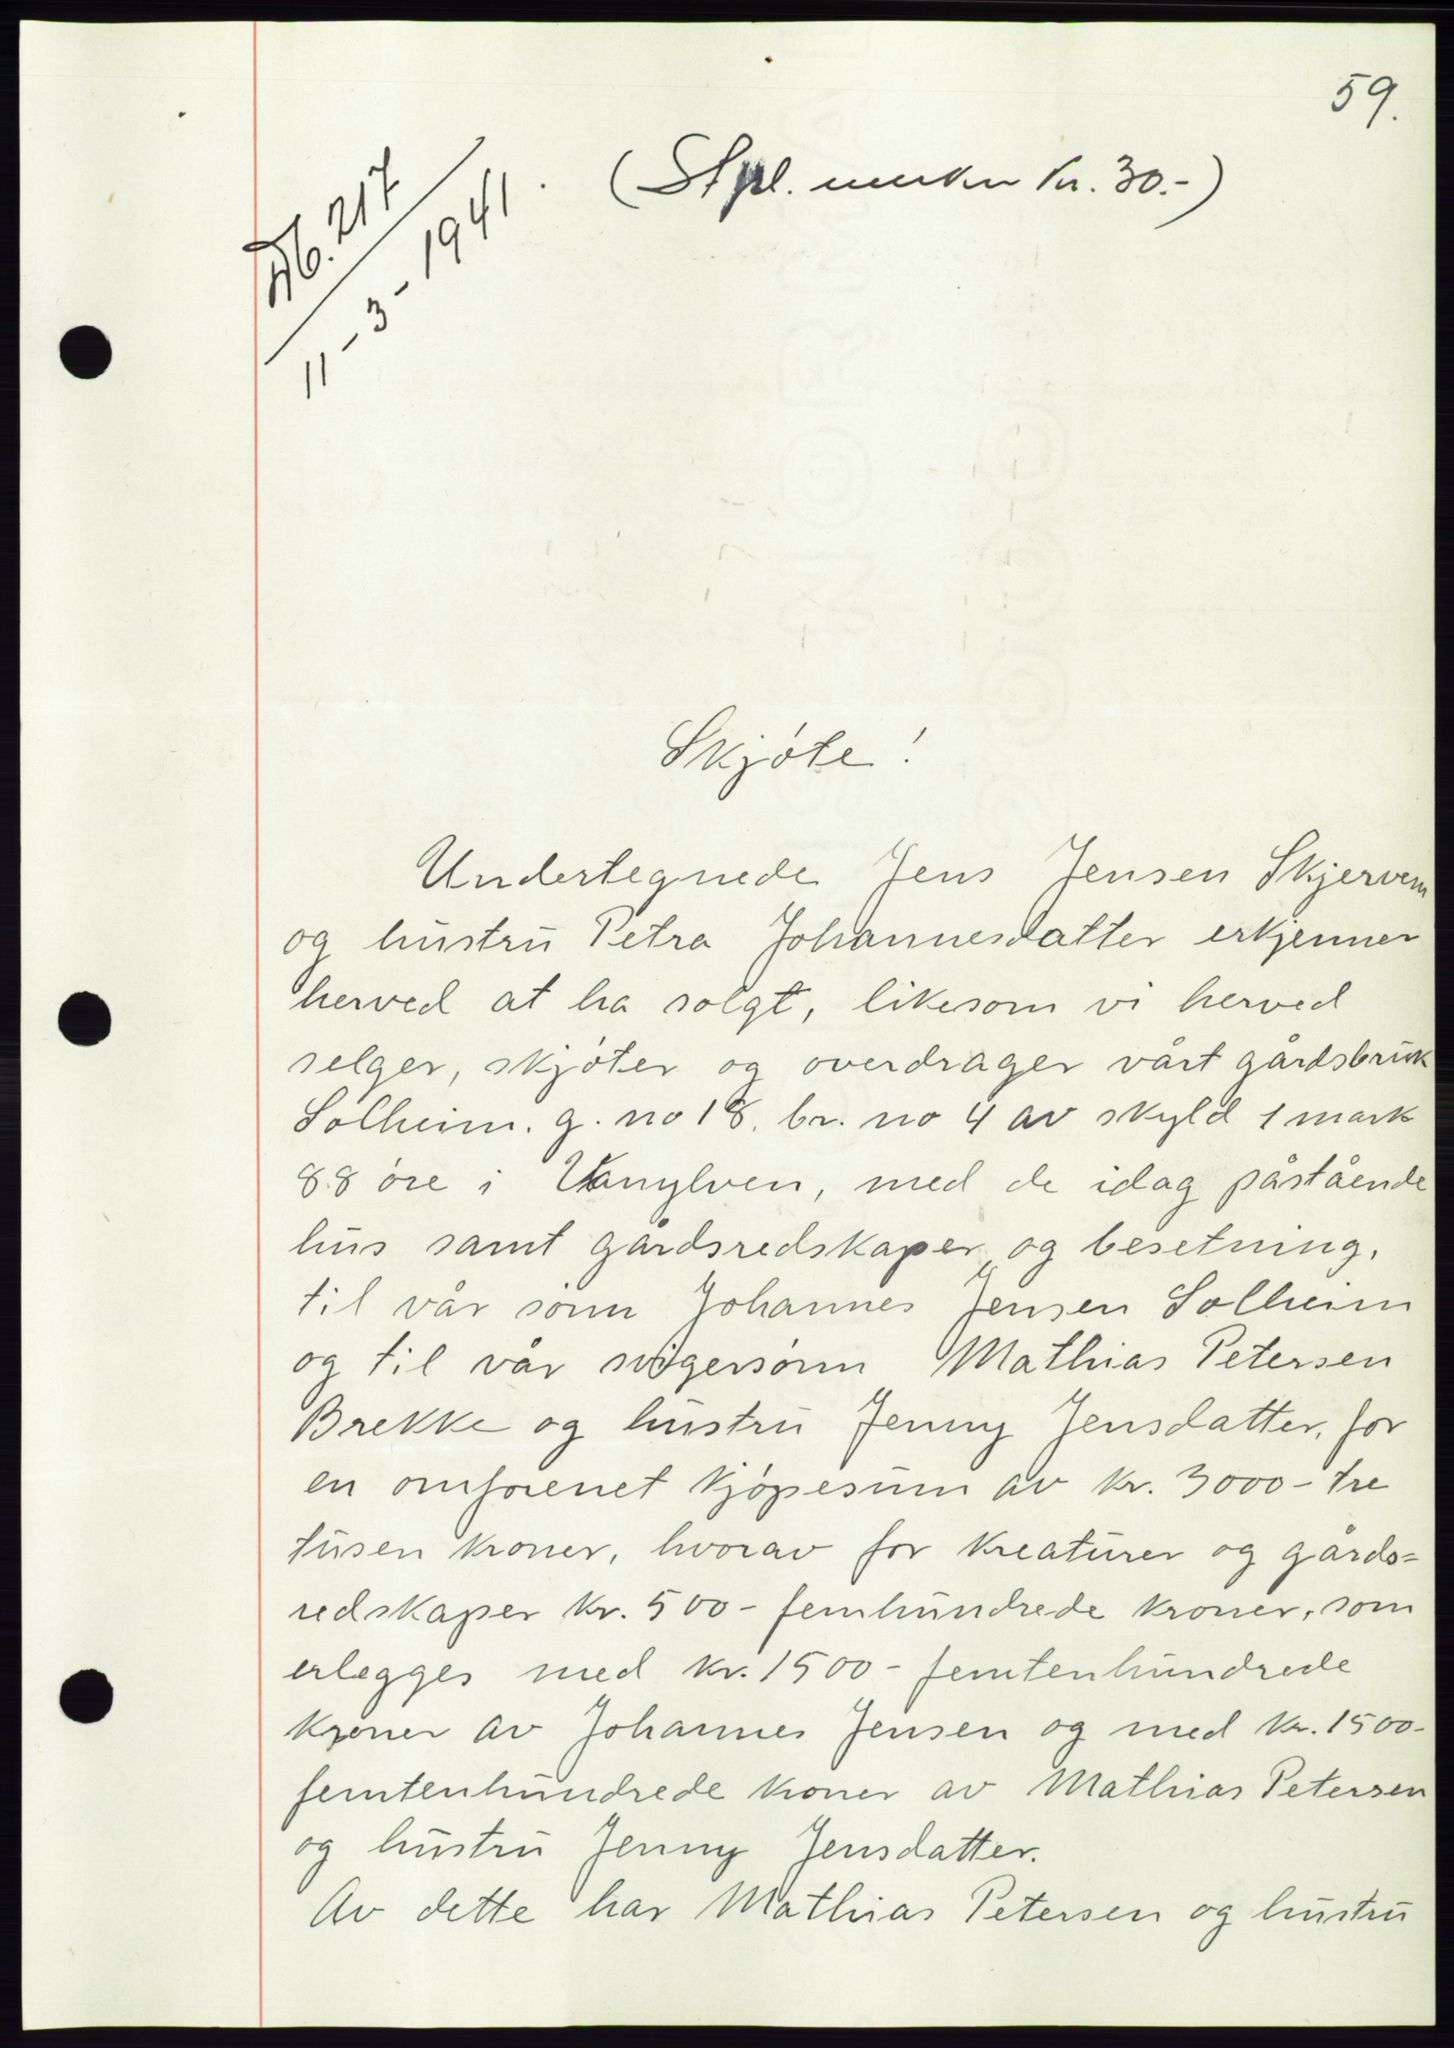 59.
(Stpl. merker kr. 30.-)
Db. 217
11-3-1941.
Skjøte!
Undertegnede Jens Jensen Skjervem
og hustru Petra Johannesdatter erkjenner
herved at ha solgt, likesom vi herved
selger, skjøter og overdrager vårt gårdsbruk
Solheim. g. no 18. br. no 4 av skyld 1 mark
88 øre i Vanylven, med de idag påstående
hus samt gårdsredskaper og besetning,
til vår sønn Johannes Jensen Solheim
og til vår svigersønn Mathias Petersen
Brekke og hustru Jenny Jensdatter, for
en omforenet kjøpesum av kr. 3000- tre
tusen kroner, hvorav for kreaturer og gårds=
redskaper kr. 500- femhundrede kroner, som
erlegges med kr. 1500- femtenhundrede
kroner av Johannes Jensen og med kr. 1500-
femtenhundrede kroner av Mathias Petersen
og hustru Jenny Jensdatter.
Av dette har Mathias Petersen og hustru